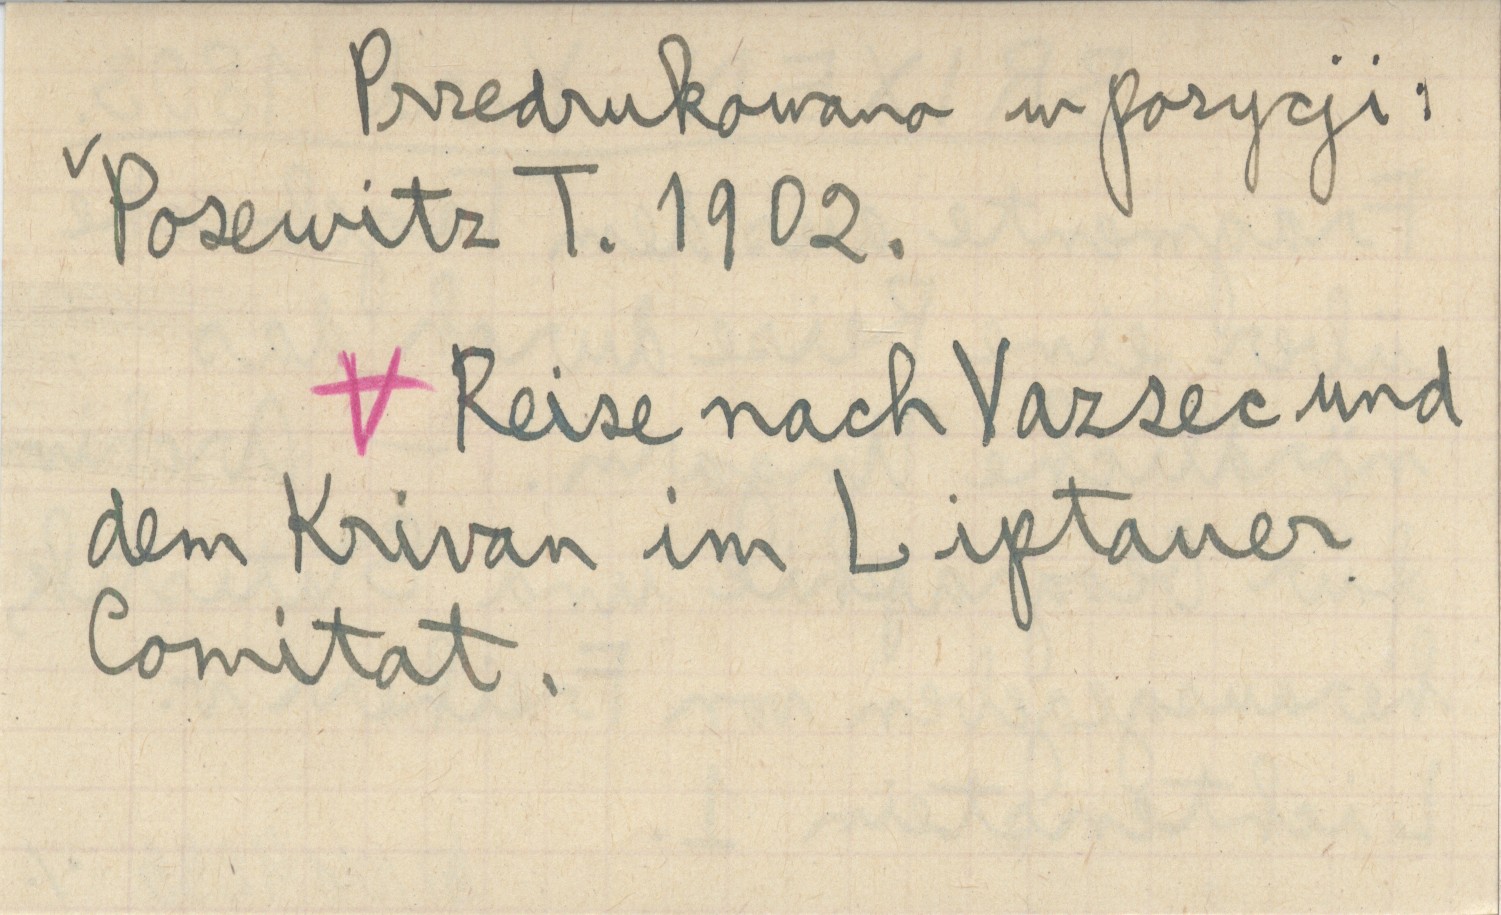 Przedrukowano w pozycji:
✓ Posewitz T. 1902.
∀ Reise nach Vazsec und
dem Krivan im Liptauer
Comitat.